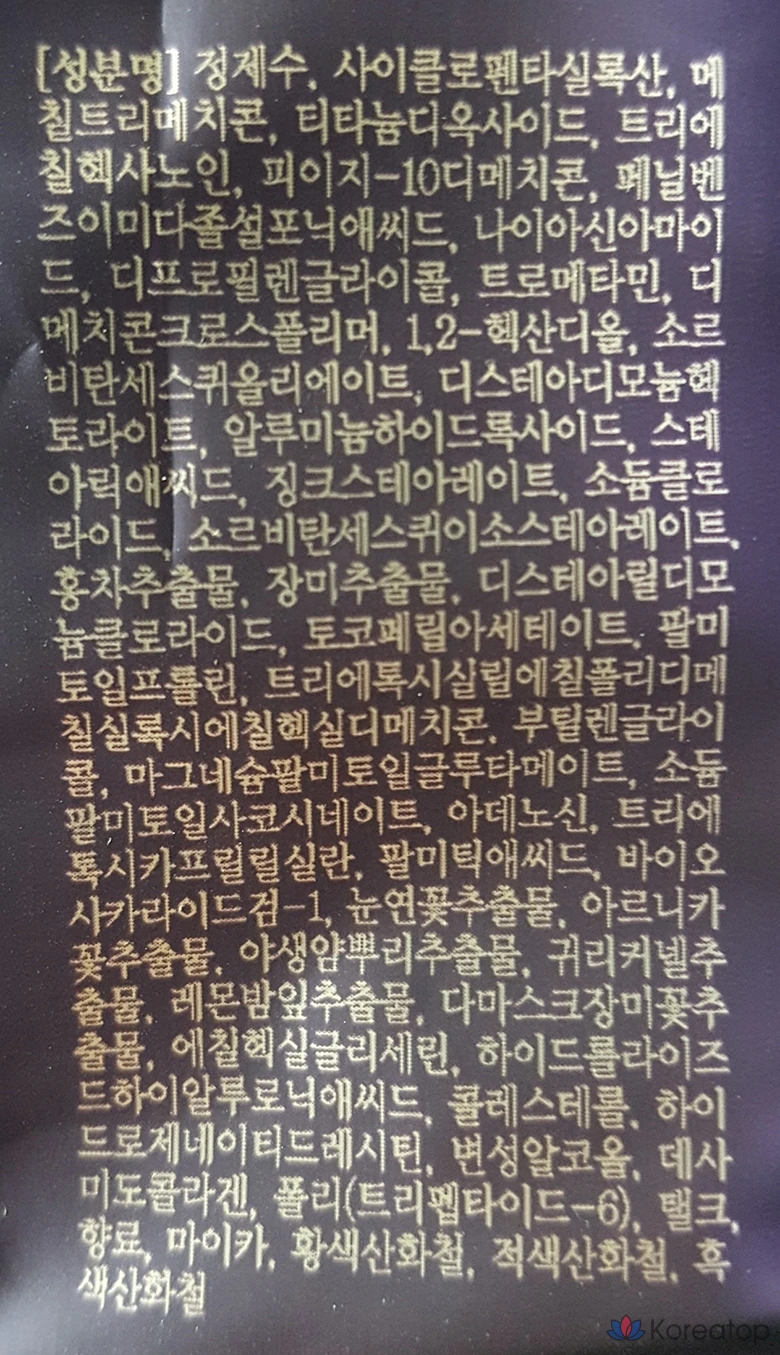 [성분명] 정제수, 사이클로펜타실록산, 메
칠트리메치콘, 티타늄디옥사이드, 트리에
칠헥사노인, 피이지-10디메치콘, 페닐벤
즈이미다졸설포닉애씨드, 나이아신아마이
드, 디프로필렌글라이콜, 트로메타민, 디
메치콘크로스폴리머, 1,2-헥산디올, 소르
비탄세스퀴올리에이트, 디스테아디모늄헥
토라이트, 알루미늄하이드록사이드, 스테
아릭애씨드, 징크스테아레이트, 소듐클로
라이드, 소르비탄세스퀴이소스테아레이트,
홍차추출물, 장미추출물, 디스테아릴디모
늄클로라이드, 토코페릴아세테이트, 팔미
토일프롤린, 트리에톡시실릴에칠폴리디메
칠실록시에칠헥실디메치콘, 부틸렌글라이
콜, 마그네슘팔미토일글루타메이트, 소듐
팔미토일사코시네이트, 아데노신, 트리에
톡시카프릴릴실란, 팔미틱애씨드, 바이오
사카라이드검-1, 눈연꽃추출물, 아르니카
꽃추출물, 야생얌뿌리추출물, 귀리커넬추
출물, 레몬밤잎추출물, 다마스크장미꽃추
출물, 에칠헥실글리세린, 하이드롤라이즈
드하이알루로닉애씨드, 콜레스테롤, 하이
드로제네이티드레시틴, 변성알코올, 데사
미도콜라겐, 폴리(트리펩타이드-6), 탤크,
향료, 마이카, 황색산화철, 적색산화철, 흑
색산화철
Koreatop